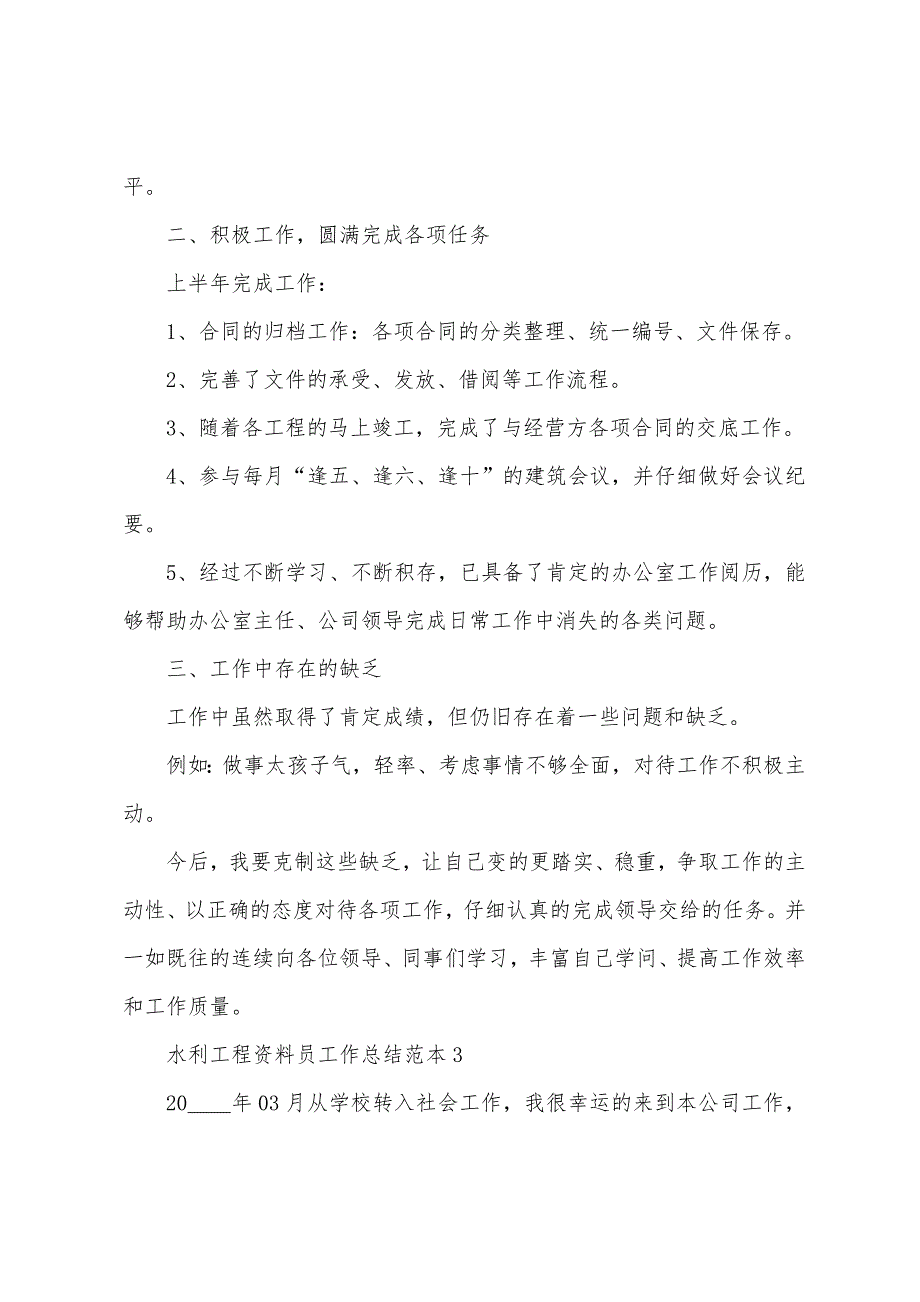 平。
二、积极工作，圆满完成各项任务
上半年完成工作：
1、合同的归档工作：各项合同的分类整理、统一编号、文件保存。
2、完善了文件的承受、发放、借阅等工作流程。
3、随着各工程的马上竣工，完成了与经营方各项合同的交底工作。
4、参与每月“逢五、逢六、逢十”的建筑会议，并仔细做好会议纪
要。
5、经过不断学习、不断积存，已具备了肯定的办公室工作阅历，能
够帮助办公室主任、公司领导完成日常工作中消失的各类问题。
三、工作中存在的缺乏
工作中虽然取得了肯定成绩，但仍旧存在着一些问题和缺乏。
例如：做事太孩子气，轻率、考虑事情不够全面，对待工作不积极主
动。
今后，我要克制这些缺乏，让自己变的更踏实、稳重，争取工作的主
动性、以正确的态度对待各项工作，仔细认真的完成领导交给的任务。并
一如既往的连续向各位领导、同事们学习，丰富自己学问、提高工作效率
和工作质量。
水利工程资料员工作总结范本 3
20____年 03 月从学校转入社会工作，我很幸运的来到本公司工作，